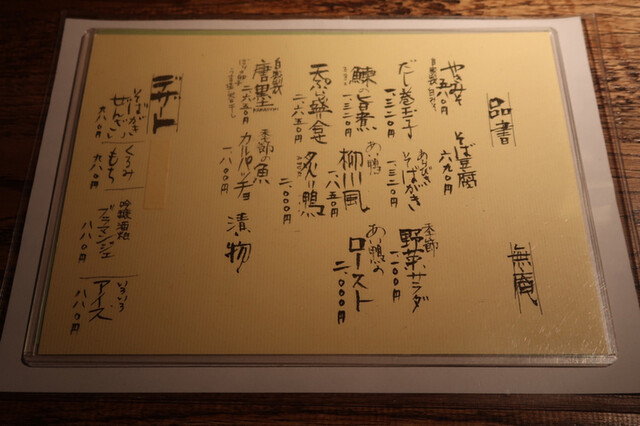 品書
無庵
やきみそ
五八〇円
そば豆腐
六九〇円
だし巻玉子
一、三二〇円
あらびき
そばがき
一、三二〇円
季節
野菜サラダ
一、一〇〇円
鰊の旨煮
一、三二〇円
あい鴨
柳川風
一、八五〇円
あい鴨の
ロースト
二、〇〇〇円
天ぷら盛合
二、六五〇円
炙り鴨
二、〇〇〇円
自家製
唐墨
KARASUMI
二、六五〇円
季節の魚
カルパッチョ
一、八〇〇円
漬物
デザート
そばがき
ぜんざい
九八〇円
くるみ
もち
九八〇円
吟醸酒粕
ブラマンジェ
八八〇円
いろいろ
アイス
八八〇円